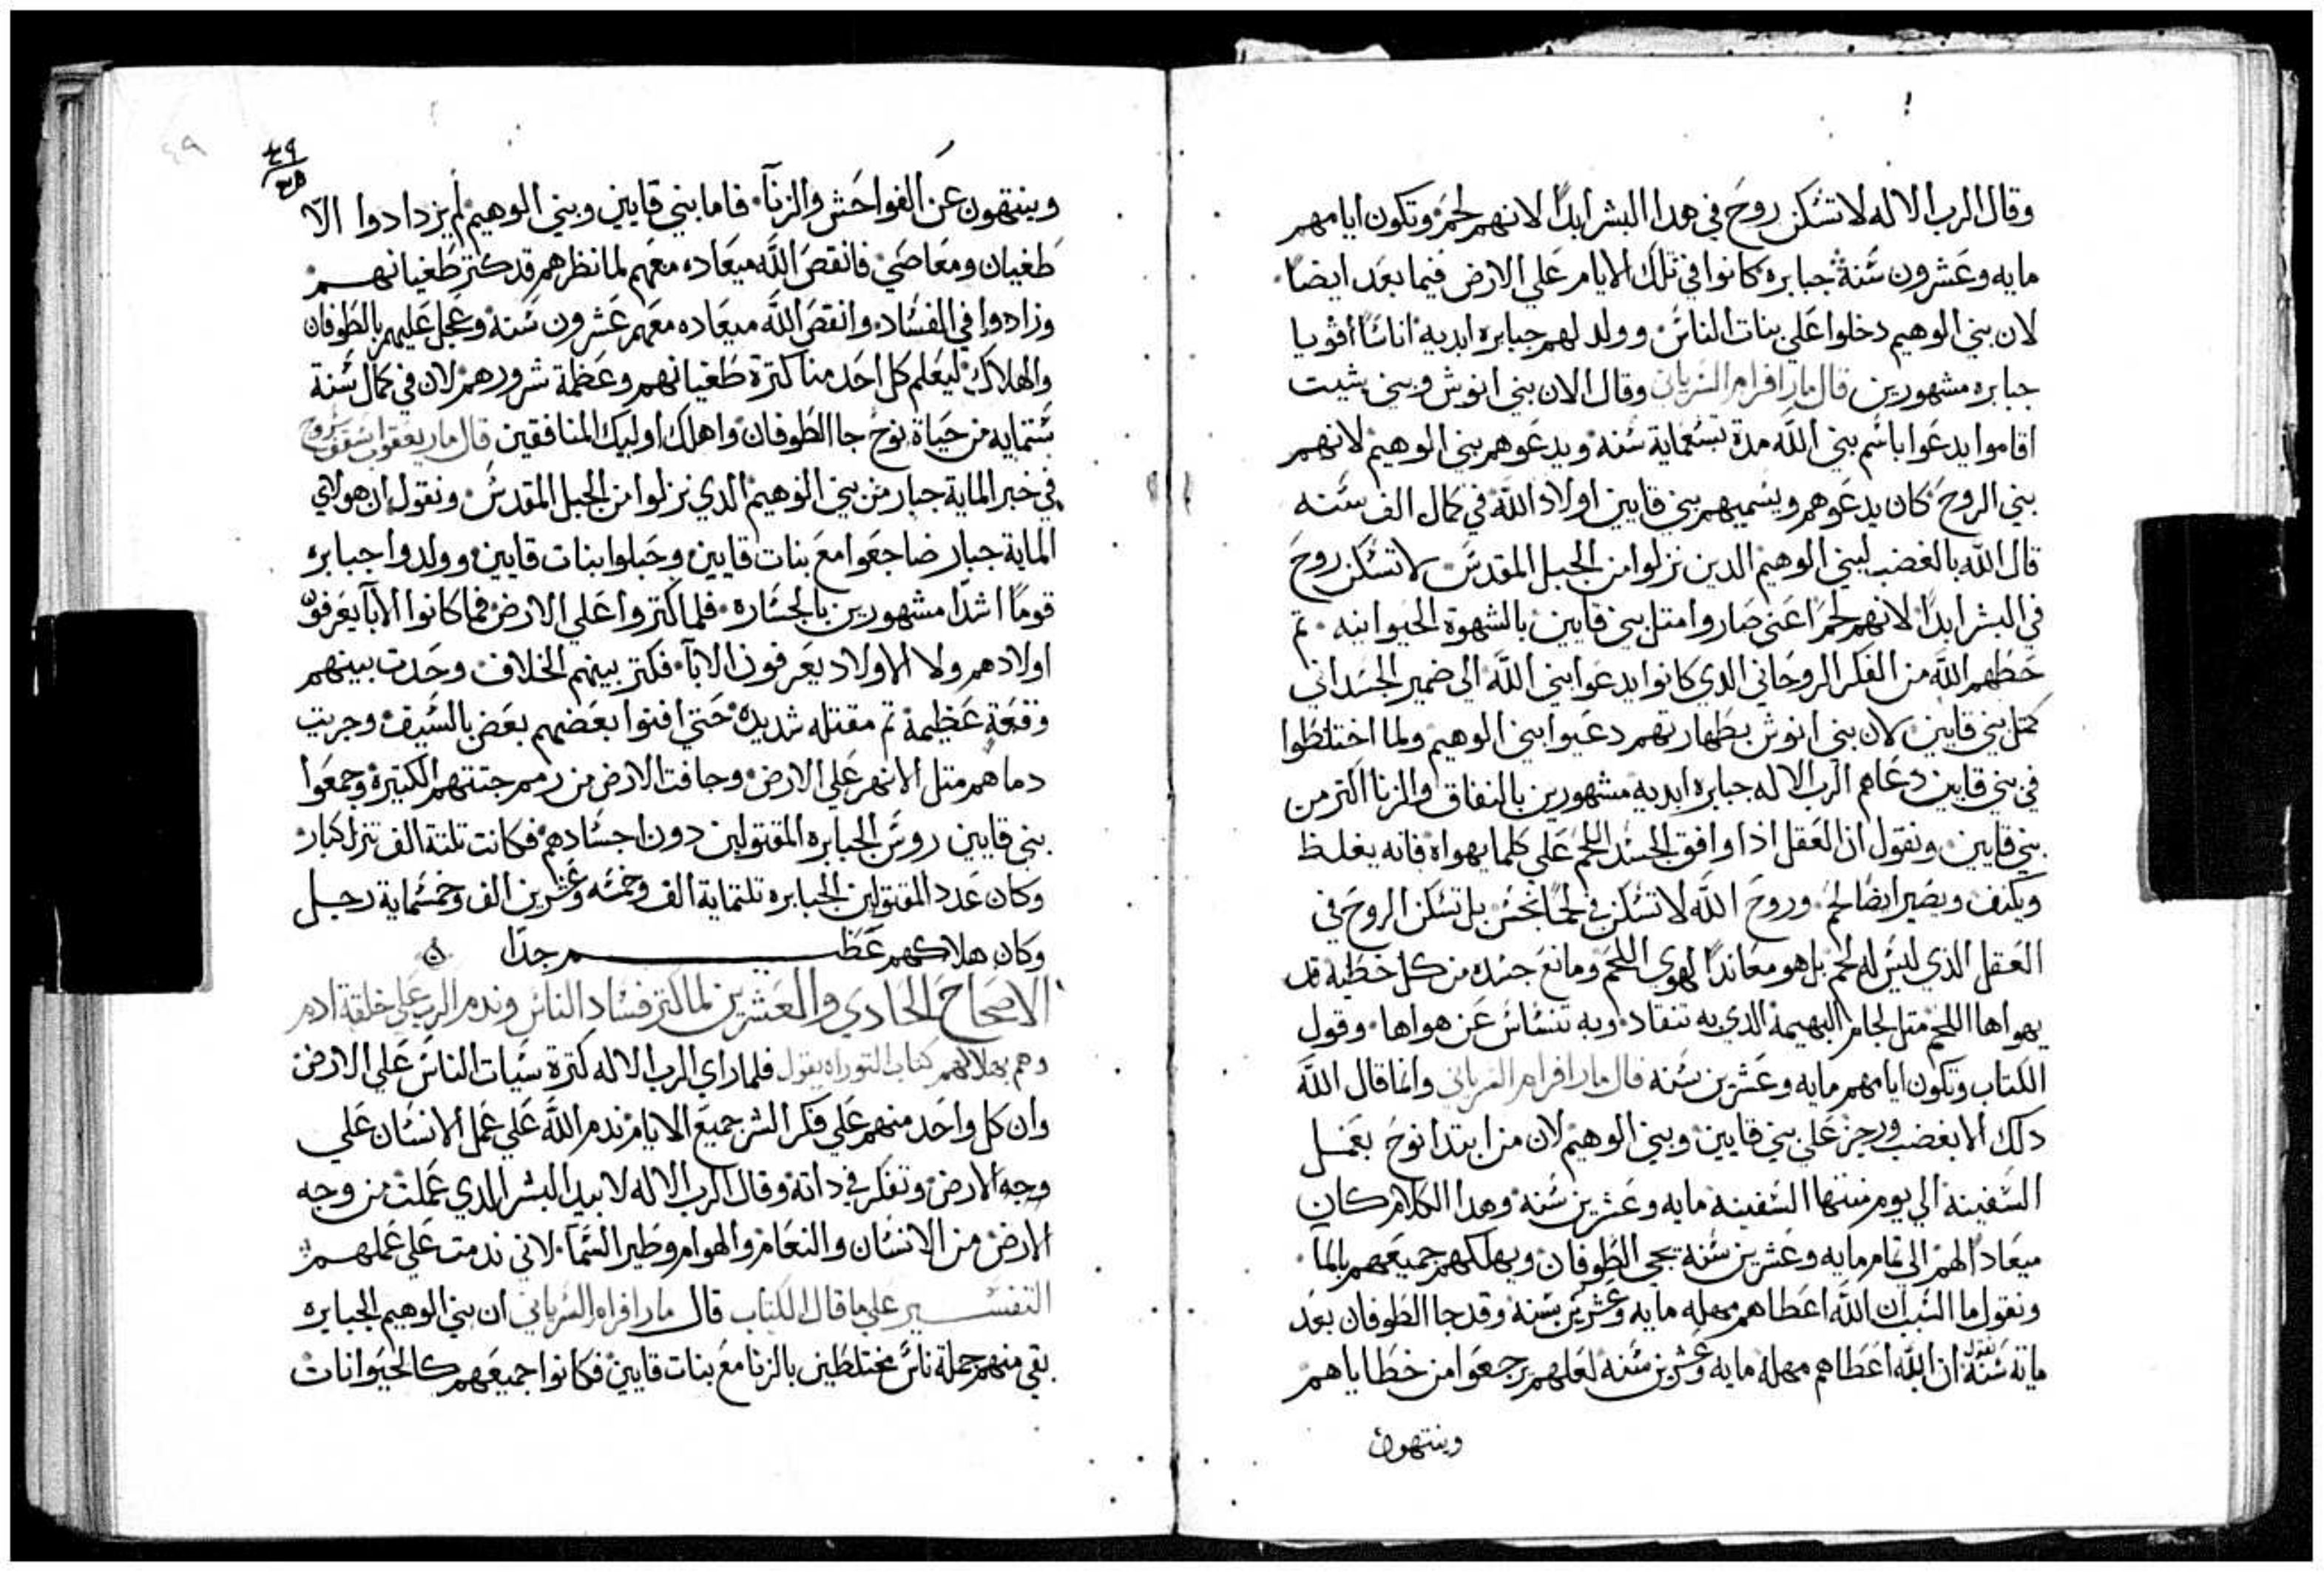 وقال الرب الاله لا تسكن روح في هدا البشر ابداً لانهم لحم وتكون ايامهم
مايه وعشرون سنة جبابره كانوا في تلك الايام علي الارض فيما بعد ايضاً
لان بني الوهيم دخلوا علي بنات الناس وولد لهم جبابره ابديه اناساً اقويا
جبابره مشهورين قال مار افرام السرياني وقال الان بني انوش وبني شيت
اقاموا يدعوا باسم بني الله مدة تسعماية سنه ويدعوهم بني الوهيم لانهم
بني الروح كان يدعوهم ويسميهم بني قايين اولاد الله في كمال الف سنه
قال الله بالغضب لبني الوهيم الدين نزلوا من الجبل المقدس لا تسكن روح
في البشر ابداً لانهم لحم اعني صاروا متل بني قايين بالشهوة الحيوانيه تم
حطهم الله من الفكر الروحاني الدي كانوا يدعوا بني الله الي ضمير الجسداني
كمتل بني قايين لان بني انوش بطهارتهم دعيوا بني الوهيم ولما اختلطوا
في بني قايين دعاهم الرب الاله جبابره ابديه مشهورين بالنفاق والزنا اكتر من
بني قايين ونقول ان العقل ادا وافق الجسد اللحم علي كلما يهواه فانه يغلظ
ويكتف ويصير ايضا لحم وروح الله لا تسكن في لحماً نجس بل تسكن الروح في
العقل الدي ليس له لحم بل هو معانداً لهوي اللحم ومانع جسده من كل خطيه قد
يهواها اللحم متل لجام البهيمة الدي به تنقاد وبه تنساس عن هواها وقول
الكتاب وتكون ايامهم مايه وعشرين سنه قال مار افرام السرياني وانما قال الله
دلك الا بغضب ورجز علي بني قايين وبني الوهيم لان من ابتدا نوح بعمل
السفينة الي يوم منتها السفينه مايه وعشرين سنه وهدا الكلام كان
ميعاداً لهم الي تمام مايه وعشرين سنة يجي الطوفان ويهلكهم جميعهم بالما
ونقول ما السبب ان الله اعطاهم مهله مايه وعشرين سنة وقد جا الطوفان بعد
ماية سنة نقول ان الله اعطاهم مهلة مايه وعشرين سنه لعلهم يرجعوا من خطاياهم
وينتهون
٤٩
٤٩
وينتهون عن الفواحش والزنآ فاما بني قايين وبني الوهيم لم يزدادوا الا
طغيان ومعاصي فانقص الله ميعاده معهم لما نظرهم قد كتر طغيانهم
وزادوا في الفساد وانقص الله ميعاده معهم عشرون سنة وعجل عليهم بالطوفان
والهلاك ليعلم كل احد منا كترة طغيانهم وعظمة شرورهم لان في كمال سنة
ستمايه من حياة نوح جا الطوفان واهلك اوليك المنافقين قال مار يعقوب اسقف سروج
في خبر الماية جبار من بني الوهيم الدي نزلوا من الجبل المقدس ونقول ان هولاي
الماية جبار ضاجعوا مع بنات قايين وحبلوا بنات قايين وولدوا جبابره
قوماً اشدا مشهورين بالجساره فلما كتروا علي الارض فما كانوا الابآ يعرفون
اولادهم ولا الاولاد يعرفون الابآ فكتر بينهم الخلاف وحدت بينهم
وقعة عظيمة تم مقتله شديده حتي افنوا بعضهم بعض بالسيف وجريت
دماهم متل الانهر علي الارض وجافت الارض من رمم جتتهم الكتيرة وجمعوا
بني قايين روس الجبابره المقتولين دون اجسادهم فكانت تلتة الف تنزل كبار
وكان عدد المقتولين الجبابره تلتماية الف وخمسه وعشرين الف وخمسماية رجل
وكان هلاكهم عظم جداً
الاصحاح الحادي والعشرين لما اكتر فساد الناس وندم الرب علي خلقة ادم
وهم بهلاكهم كتاب التوراه يقول فلما راي الرب الاله كترة سيات الناس علي الارض
وان كل واحد منهم علي فكر الشر جميع الايام ندم الله علي عمل الانسان علي
وجه الارض وتفكر في داته وقال الرب الاله لابيد البشر الدي عملت من وجه
الارض من الانسان والنعام والهوام وطير السمآ لاني ندمت علي عملهم
التفسير علي ما قال الكتاب قال مار افرام السرياني ان بني الوهيم الجبابره
بقي منهم جملة ناس مختلطين بالزنا مع بنات قايين فكانوا جميعهم كالحيوانات